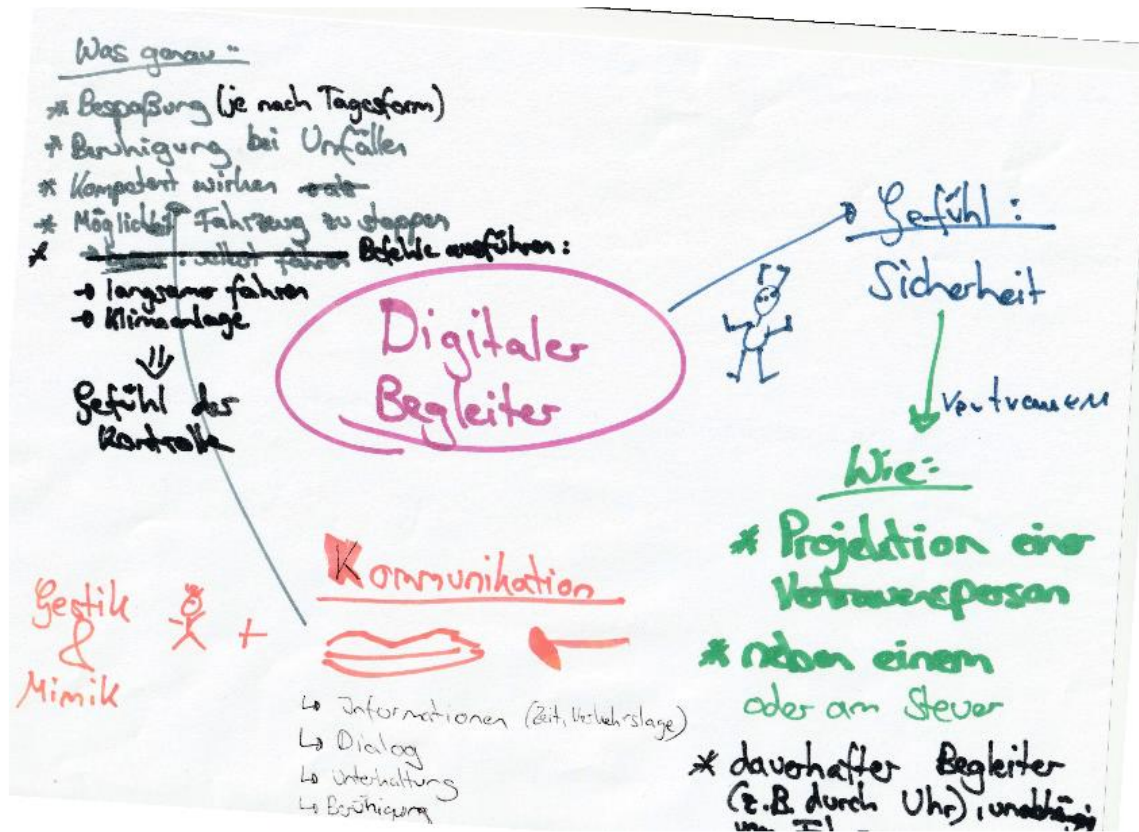 Was genau:
* Bespaßung (je nach Tagesform)
* Beruhigung bei Unfällen
* Kompetent wirken
* Möglichkeit Fahrzeug zu stoppen
* selbst fahren Befehle ausführen:
→ langsamer fahren
→ Klimaanlage
⇓
Gefühl der
Kontrolle
Digitaler
Begleiter
Gefühl:
Sicherheit
Vertrauen
Wie:
* Projektion einer
Vertrauensperson
* neben einem
oder am Steuer
* dauerhafter Begleiter
(z.B. durch Uhr), unabhängig
Kommunikation
Gestik
&
Mimik
+
↳ Informationen (Zeit, Verkehrslage)
↳ Dialog
↳ Unterhaltung
↳ Beruhigung